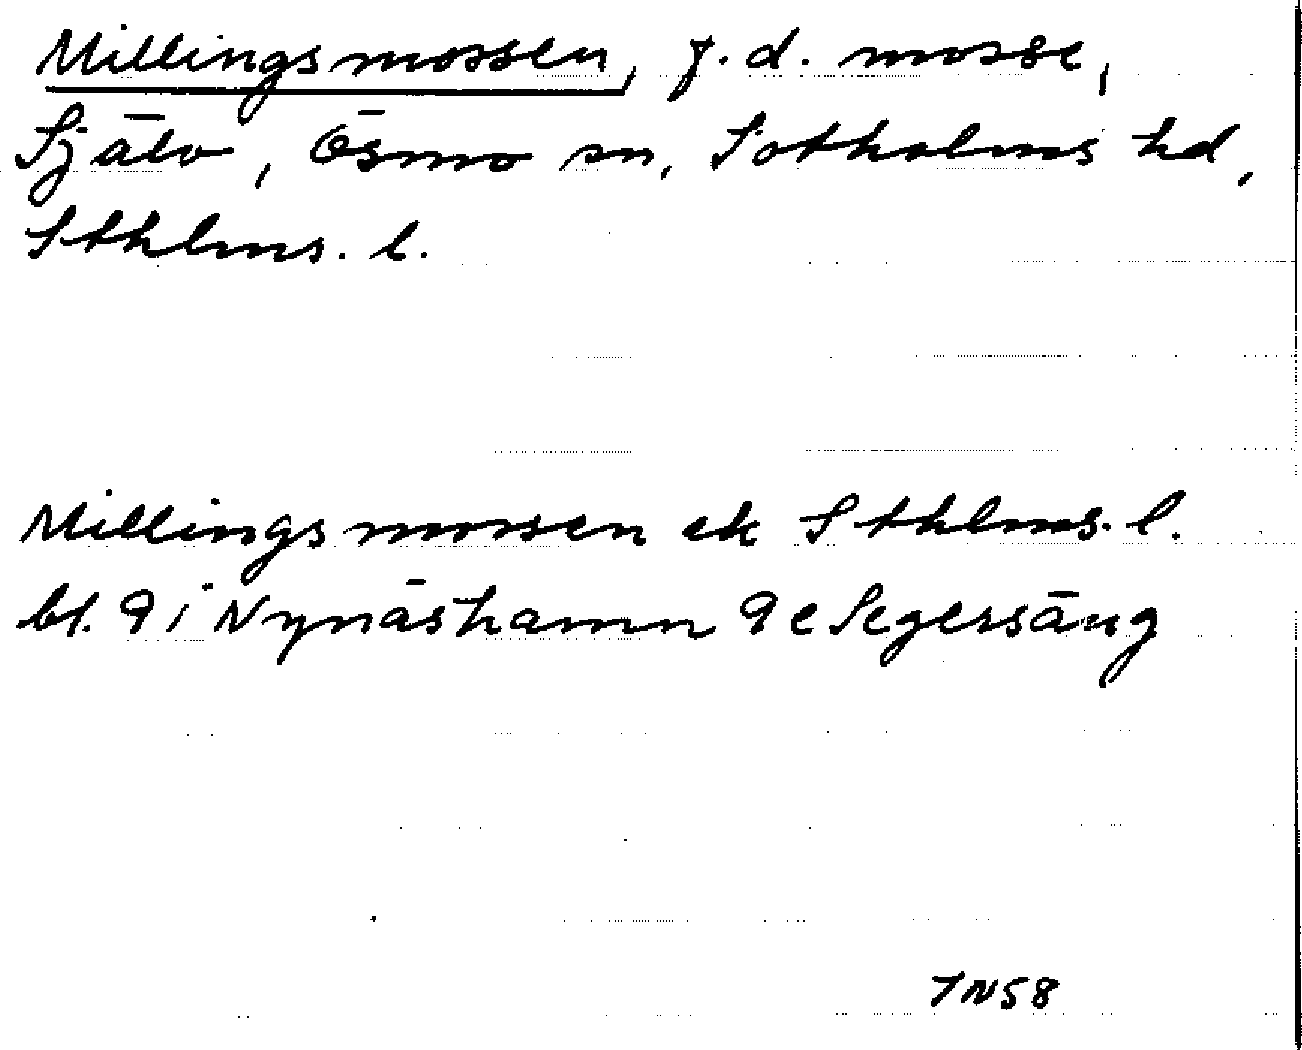 Millingsmossen, f.d. mosse,
Själv, Ösmo sn, Sotholms hd,
Sthlms. l.
Millingsmossen ek Sthlms. l.
bl. 9 i Nynäshamn 9e Segersäng
TN58